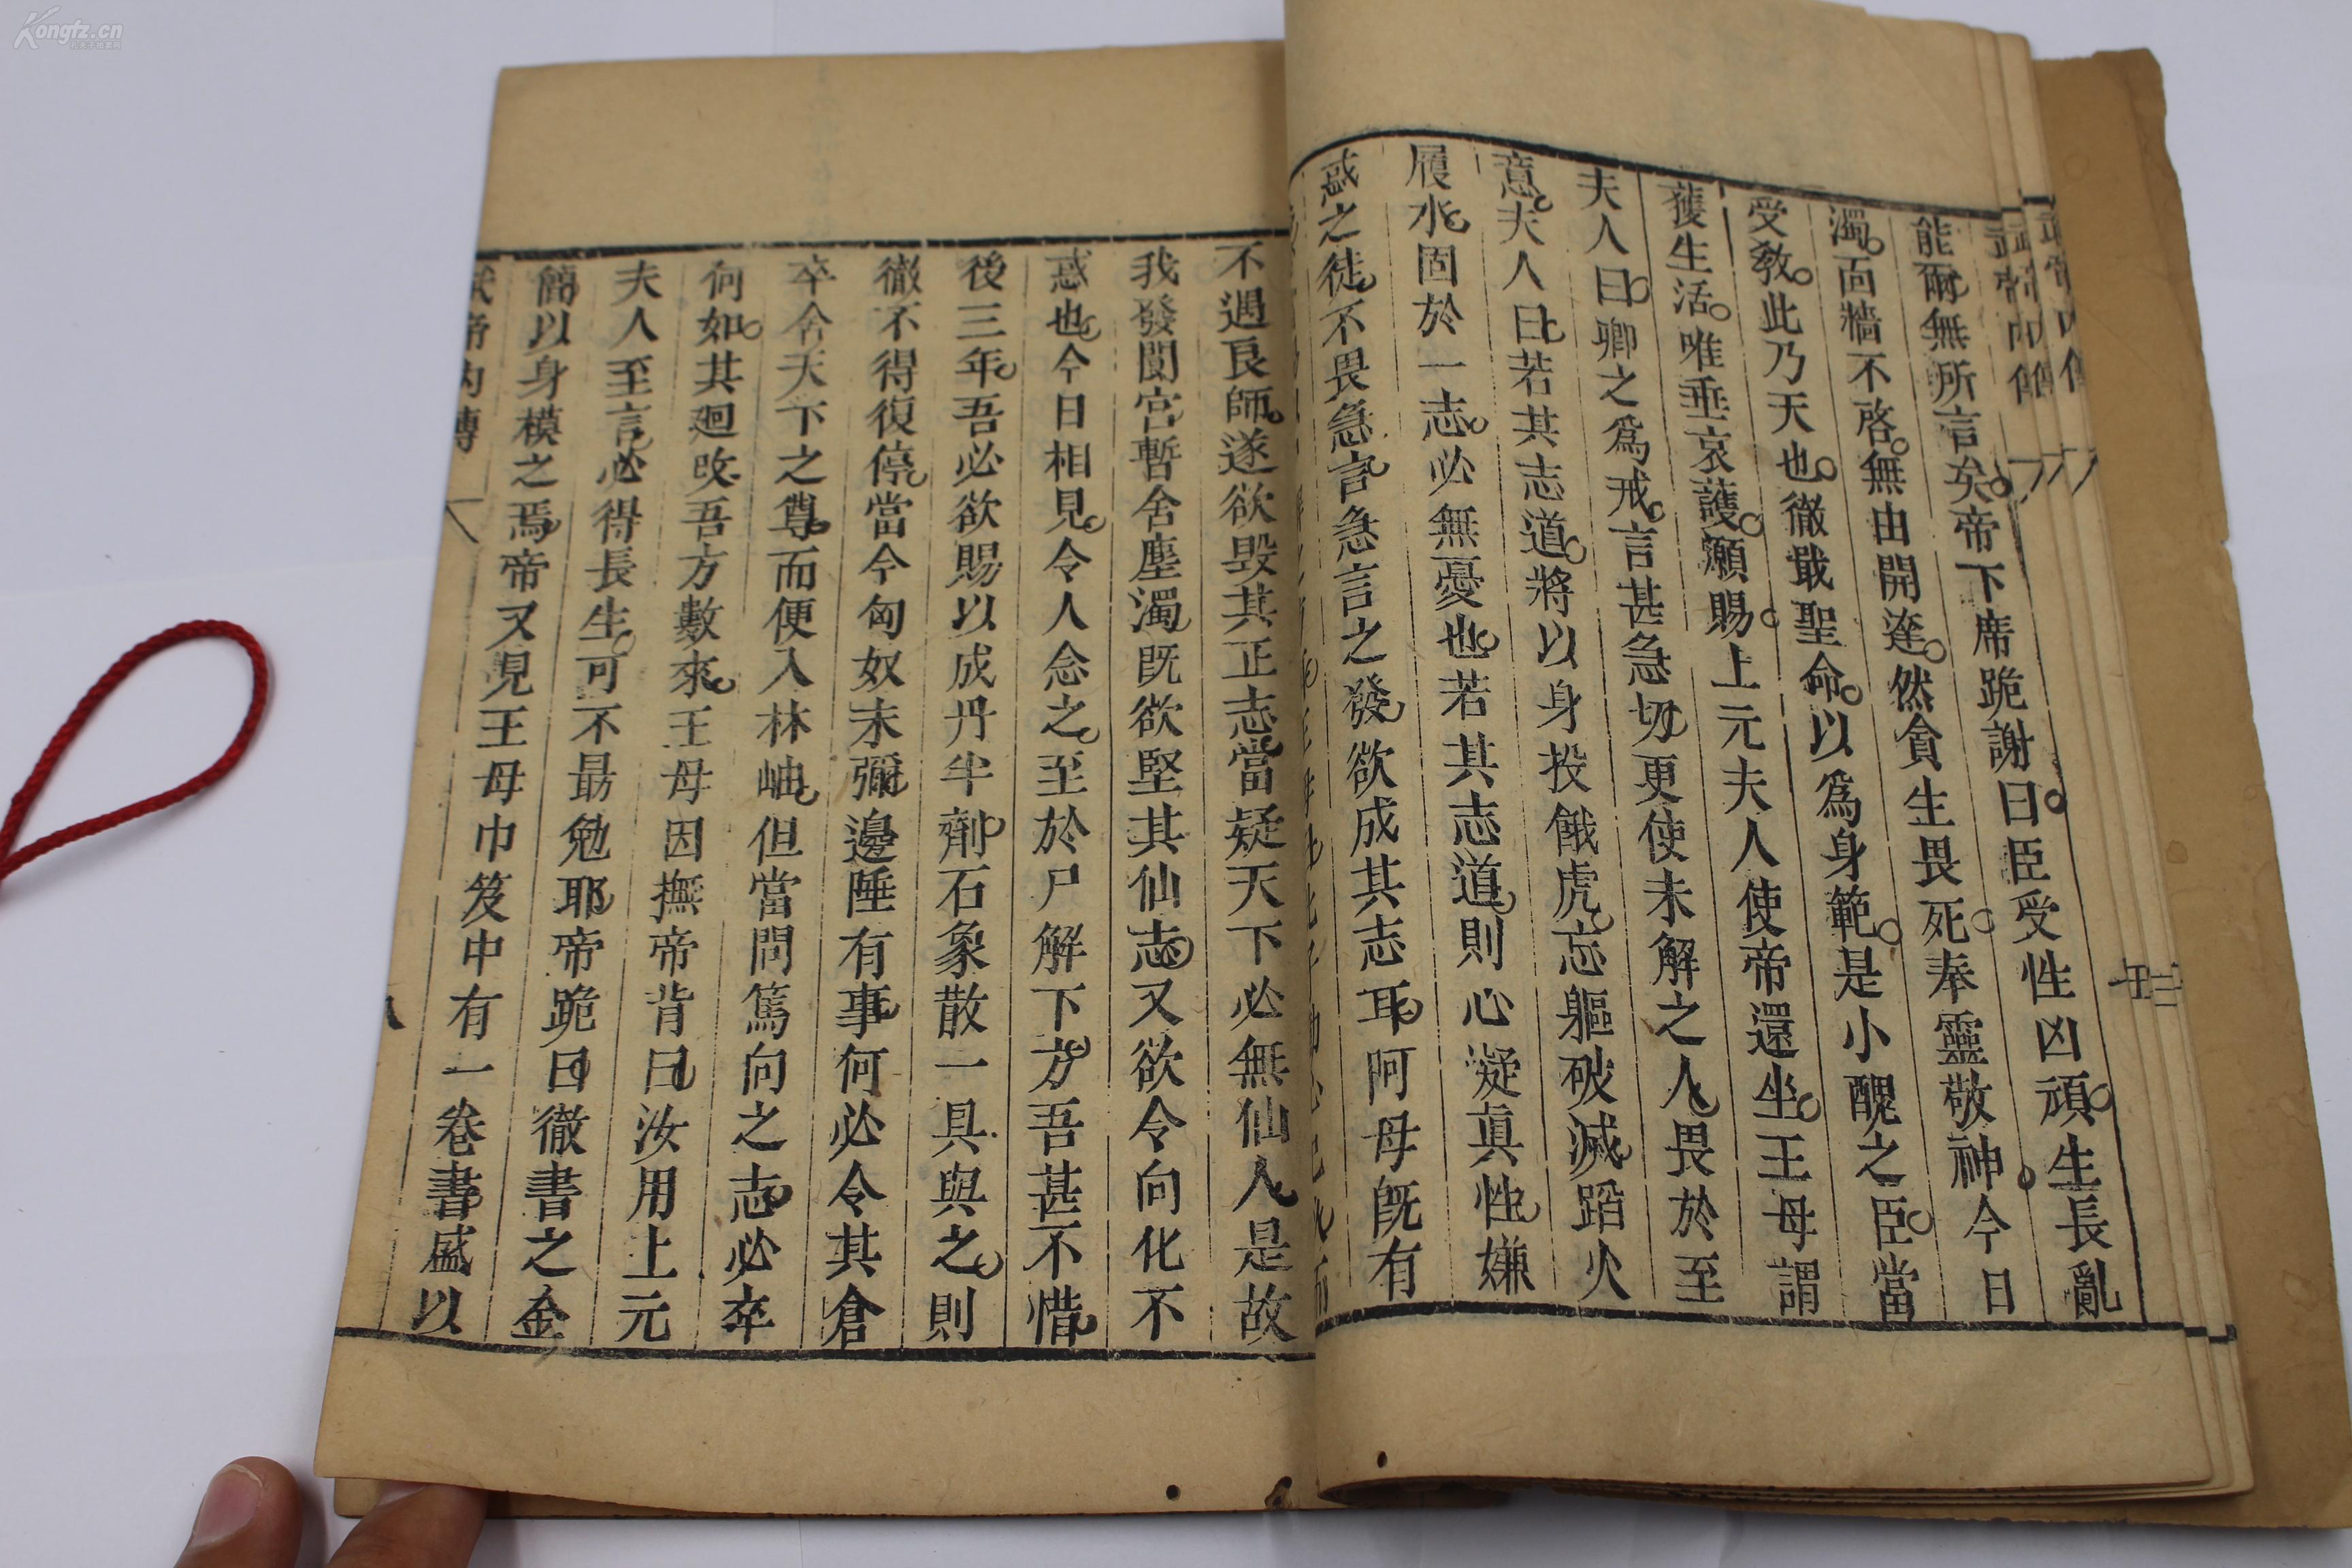 能爾無所言矣帝下席跪謝曰臣受性凶頑生長亂
濁面牆不啓無由開達然貪生畏死奉靈敬神今日
受教此乃天也徹戢聖命以爲身範是小醜之臣當
獲生活唯垂哀護願賜上元夫人使帝還坐王母謂
夫人曰卿之爲戒言甚急切更使未解之人畏於至
意夫人曰若其志道將以身投餓虎忘軀破滅蹈火
履水固於一志必無憂也若其志道則心凝真性嫌
惑之徒不畏急言急言之發欲成其志耳阿母旣有
不遇良師遂欲毀其正志當疑天下必無仙人是故
我發閬宮暫舍塵濁旣欲堅其仙志又欲令向化不
惑也今日相見令人念之至於尸解下方吾甚不惜
後三年吾必欲賜以成丹半劑石象散一具與之則
徹不得復停當今匈奴未彌邊陲有事何必令其倉
卒舍天下之尊而便入林岫但當問篤向之志必卒
何如其廻改吾方數來王母因撫帝背曰汝用上元
夫人至言必得長生可不最勉耶帝跪曰徹書之金
簡以身模之焉帝又見王母巾笈中有一卷書盛以
武帝內傳
八
武帝內傳
Kongfz.cn
孔夫子旧书网